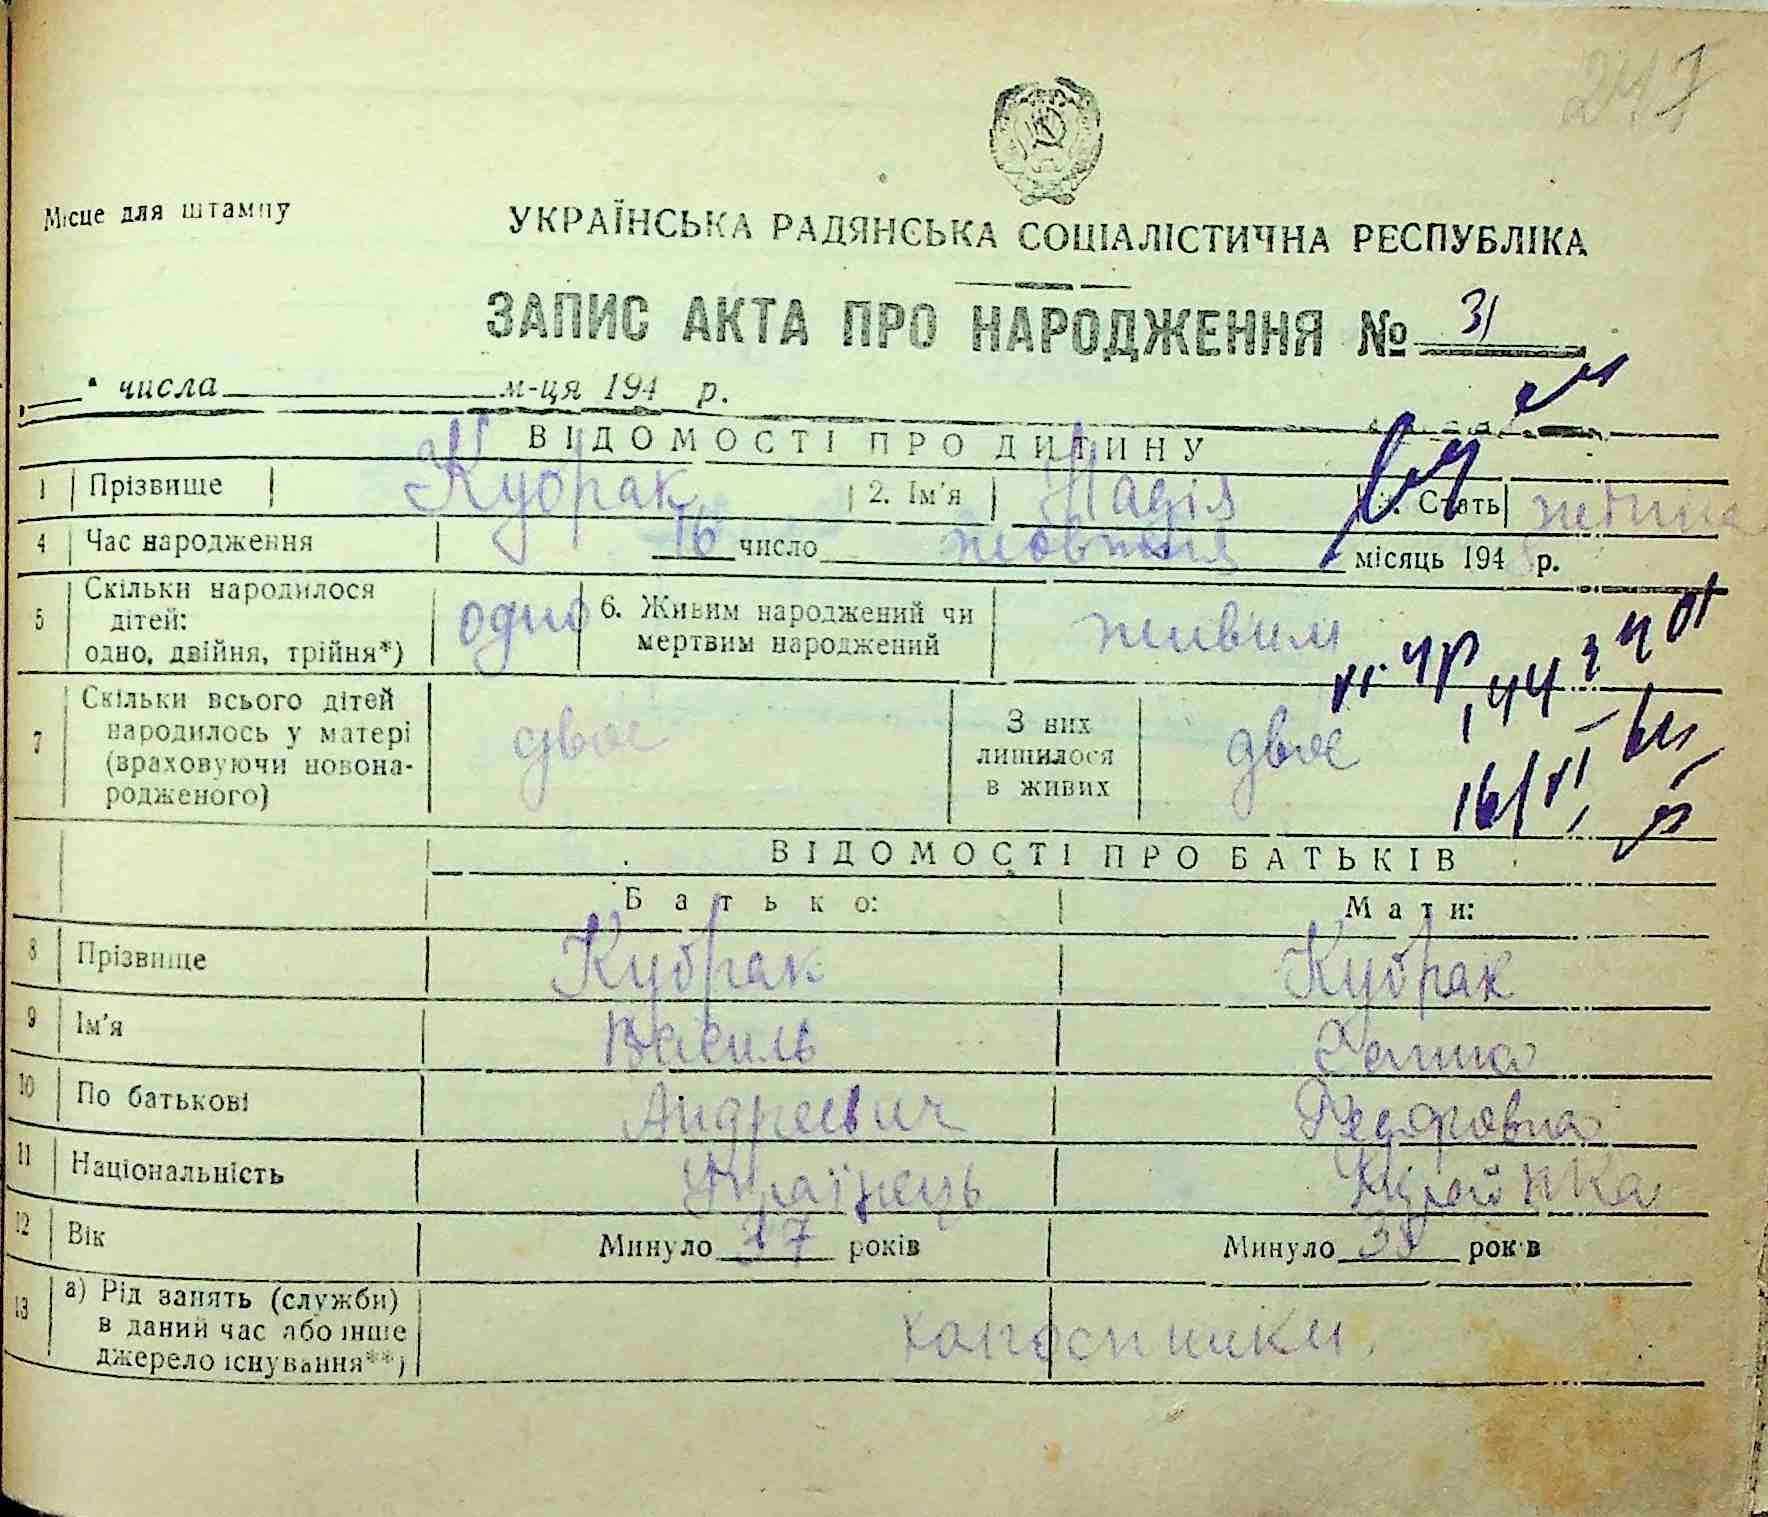 247
Місце для штампу
УКРАЇНСЬКА РАДЯНСЬКА СОЦІАЛІСТИЧНА РЕСПУБЛІКА
ЗАПИС АКТА ПРО НАРОДЖЕННЯ № 31
числа м-ця 194 р.
ВІДОМОСТІ ПРО ДИТИНУ
1 Прізвище Кубрак 2. Ім'я Надія 3. Стать жетика
4 Час народження 16 число жовтня місяць 194 р.
5 Скільки народилося дітей: одно, двійня, трійня*) одно 6. Живим народжений чи мертвим народжений живим
7 Скільки всього дітей народилось у матері (враховуючи новонародженого) двоє З них лишилося в живих двоє
16/VI
ВІДОМОСТІ ПРО БАТЬКІВ
Батько: Мати:
8 Прізвище Кубрак Кубрак
9 Ім'я Василь Галина
10 По батькові Андреевич Федоровна
11 Національність Українець Украйнка
12 Вік Минуло 37 років Минуло рок в
13 а) Рід занять (служби) в даний час або інше джерело існування**) колгоспники.